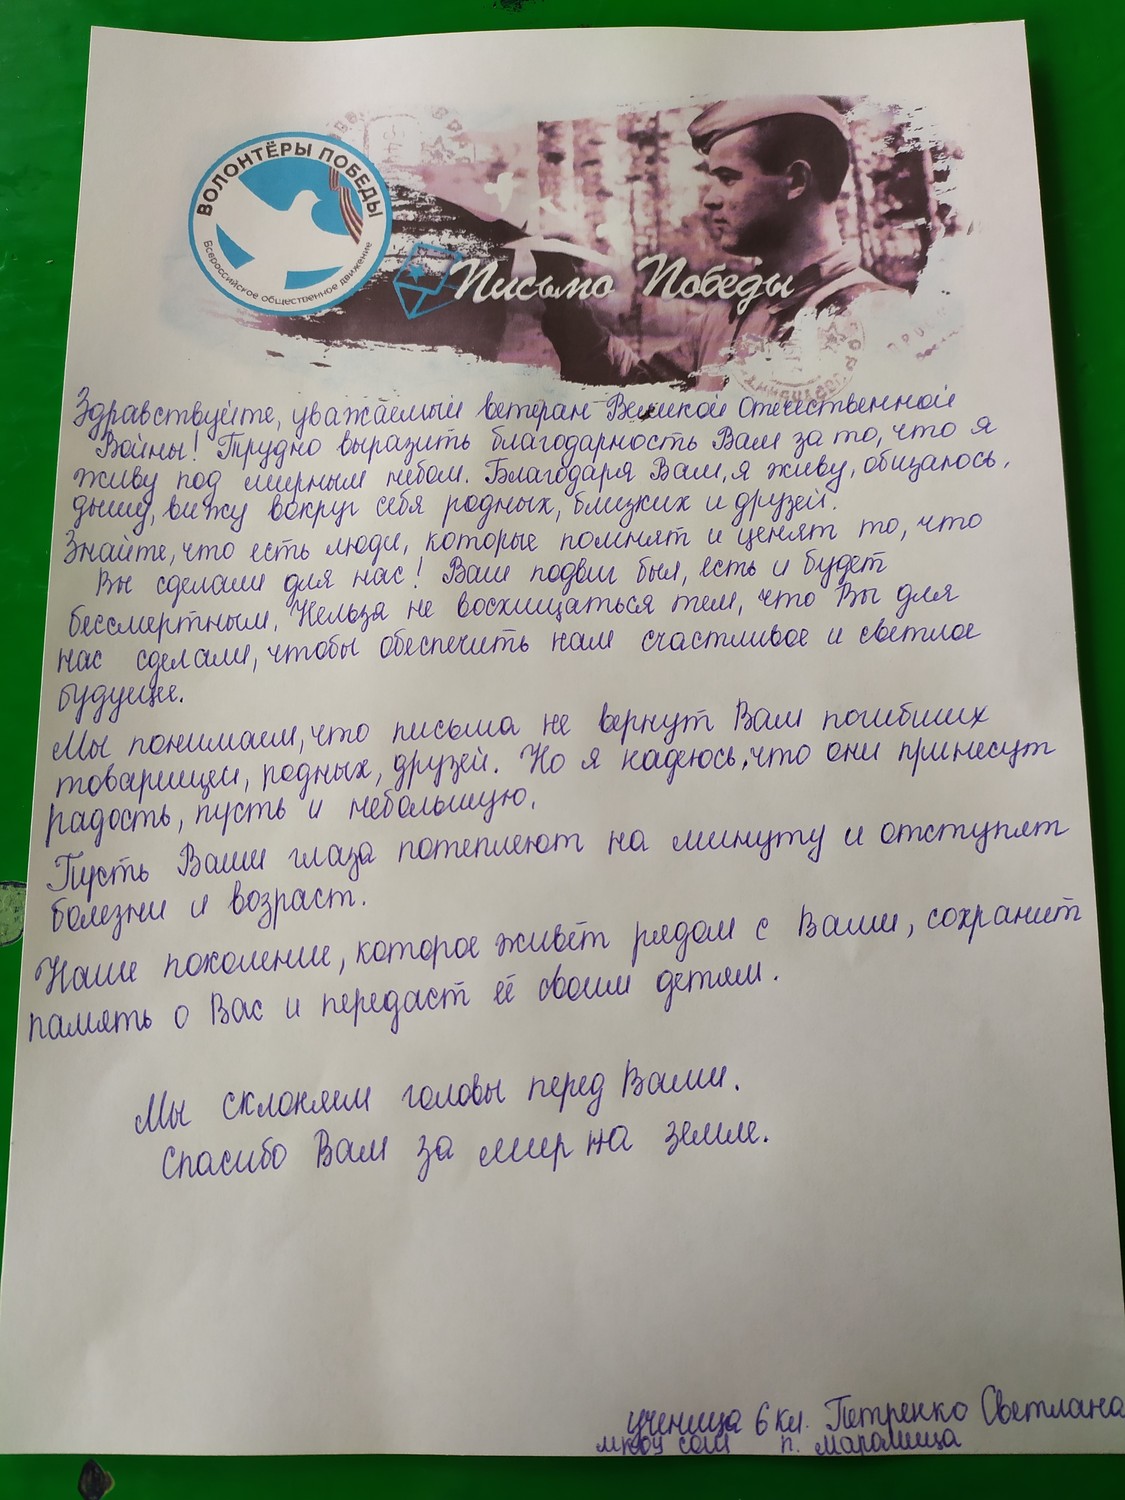 ВОЛОНТЁРЫ ПОБЕДЫ
Всероссийское общественное движение
Письмо Победы
Здравствуйте, уважаемый ветеран Великой Отечественной
Войны! Трудно выразить благодарность Вам за то, что я
живу под мирным небом. Благодаря Вам, я живу, общаюсь,
дышу, вижу вокруг себя родных, близких и друзей.
Знайте, что есть люди, которые помнят и ценят то, что
Вы сделали для нас! Ваш подвиг был, есть и будет
бессмертным. Нельзя не восхищаться тем, что Вы для
нас сделали, чтобы обеспечить нам счастливое и светлое
будущее.
Мы понимаем, что письма не вернут Вам погибших
товарищей, родных, друзей. Но я надеюсь, что они принесут
радость, пусть и небольшую.
Пусть Ваши глаза потеплеют на минуту и отступят
болезни и возраст.
Наше поколение, которое живёт рядом с Вами, сохранит
память о Вас и передаст её своим детям.
Мы склоняем головы перед Вами.
Спасибо Вам за мир на земле.
ученица 6 кл. Петренко Светлана
мкоу сош п. Маромица